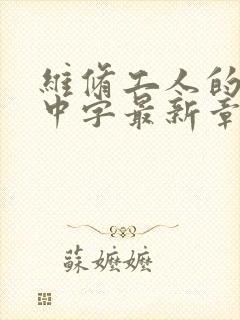 維脩工人的
中字最新章
蘇嬤嬤